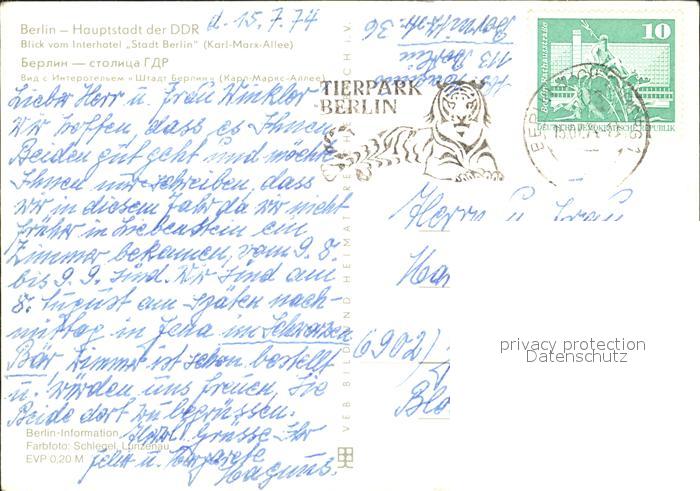 Berlin – Hauptstadt der DDR
Blick vom Interhotel „Stadt Berlin" (Karl-Marx-Allee)
Берлин — столица ГДР
Вид с Интеротелем «Штадт Берлин» (Карл-Маркс-Аллее)
d. 15.7.74
Lieber Herr u. Frau Winkler
Wir hoffen dass es Ihnen
Beiden gut geht und möchte
Ihnen nur schreiben, dass
wir in diesem Jahr da wir nicht
früher in Liebenstein ein
Zimmer bekamen, vom 9.8.
bis 9.9. sind. Wir sind am
8. August am späten nach-
mittag in Jena im Schwarzen
Bär Zimmer ist schon bestellt
u. würden uns freuen, Sie
Beide dort zu begrüssen.
Herzl. Grüsse Ihr
Felix u. Margarete
Magnus.
Berlin-Information
Farbfoto: Schlegel, Lunzenau
EVP 0,20 M
VEB BILD UND HEIMAT REICHENBACH I. V.
113 Berlin
36
TIERPARK
BERLIN
10
Berlin, Rathausstraße
DEUTSCHE DEMOKRATISCHE REPUBLIK
Herrn u. Frau
(6902)
privacy protection
Datenschutz